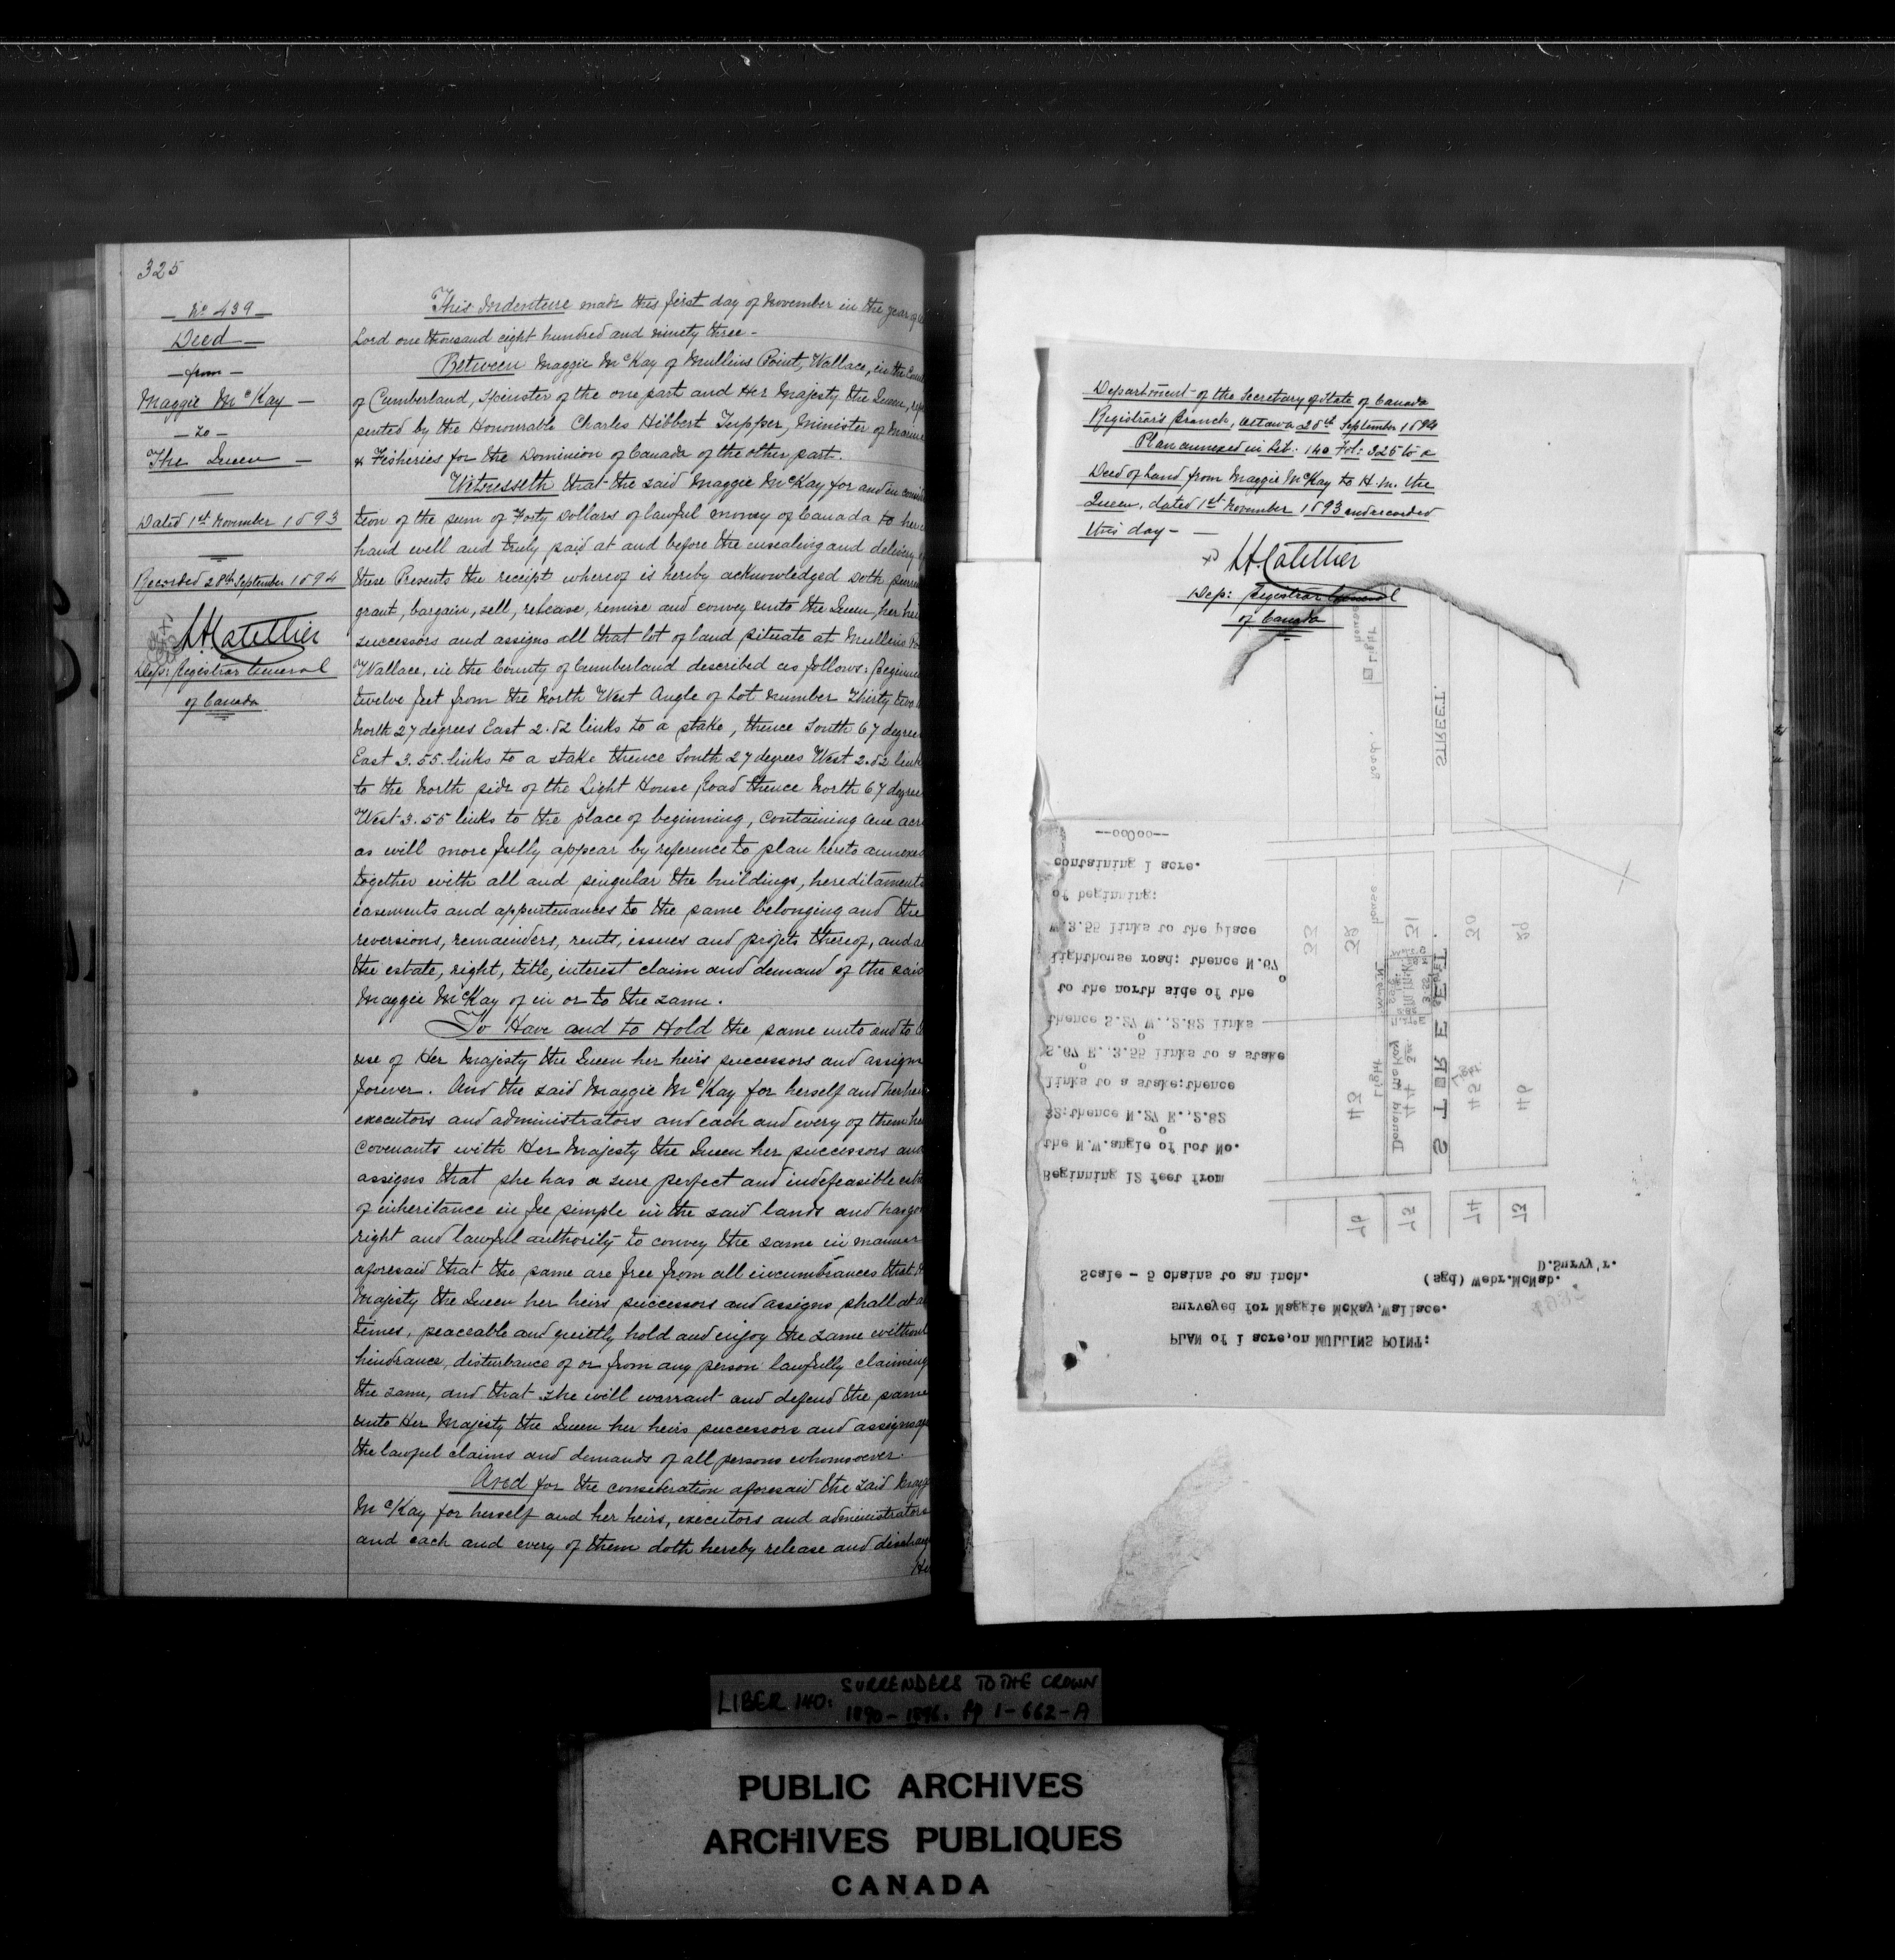 325
No 439
Deed
from
Maggie McKay
to
The Queen
Dated 1st November 1893
Recorded 28th September 1894
L.A. Catellier
Dep: Registrar General
of Canada
This Indenture made this first day of November in the year of
Lord one thousand eight hundred and ninety three -
Between Maggie McKay of Mullins Point, Wallace, in the
of Cumberland, Spinster of the one part and Her Majesty the Queen,
sented by the Honourable Charles Hibbert Tupper, Minister of Marine
& Fisheries for the Dominion of Canada of the other part.
Witnesseth that the said Maggie McKay for and in
tion of the sum of Forty Dollars of lawful money of Canada to her
hand well and truly paid at and before the ensealing and delivery
these Presents the receipt whereof is hereby acknowledged doth
grant, bargain, sell, release, remise and convey unto the Queen, her
successors and assigns all that lot of land situate at Mullins
Wallace, in the County of Cumberland described as follows:
twelve feet from the North West Angle of Lot Number Thirty two
North 27 degrees East 2.82 links to a stake, thence South 67 degrees
East 3.55 links to a stake thence South 27 degrees West 2.82 links
to the North side of the Light House Road thence North 67 degrees
West 3.55 links to the place of beginning, containing one acre
as will more fully appear by reference to plan hereto annexed
together with all and singular the buildings, hereditaments
easements and appurtenances to the same belonging and the
reversions, remainders, rents, issues and profits thereof, and
the estate, right, title, interest claim and demand of the said
Maggie McKay of in or to the same.
To Have and to Hold the same unto and to
use of Her Majesty the Queen her heirs successors and assigns
forever. And the said Maggie McKay for herself and her
executors and administrators and each and every of them
covenants with Her Majesty the Queen her successors and
assigns that she has a sure perfect and indefeasible
of inheritance in fee simple in the said lands and has
right and lawful authority to convey the same in manner
aforesaid that the same are free from all incumbrances that
Majesty the Queen her heirs successors and assigns shall at
times, peaceable and quietly hold and enjoy the same without
hindrance, disturbance of or from any person lawfully claiming
the same, and that she will warrant and defend the same
unto Her Majesty the Queen her heirs successors and assigns
the lawful claims and demands of all persons whomsoever.
And for the consideration aforesaid the said
McKay for herself and her heirs, executors and administrators
and each and every of them doth hereby release and
Department of the Secretary of State of Canada
Registrar's Branch, Ottawa 28th September 1894
Plan annexed in Lib. 140 Fol: 325 to a
Deed of Land from Maggie McKay to H.M. the
Queen, dated 1st November 1893 and recorded
this day -
L.A. Catellier
Dep: Registrar General
of Canada
PLAN of 1 acre, on MULLINS POINT:
surveyed for Maggie McKay, Wallace.
Scale - 5 chains to an inch.
(sgd) Webr. McNab.
D.Survy'r.
Beginning 12 feet from
the N.W. angle of Lot No.
32; thence N.27° E., 2.82
links to a stake; thence
S.67° E., 3.55 links to a stake
thence S.27° W., 2.82 links
to the north side of the
lighthouse road; thence N.67°
W. 3.55 links to the place
of beginning;
containing 1 acre.
--oo0oo--
76 75 74 73
43 44 45 46
Donald McKay
33 32 31 30 29
STREET
Light house Road.
Light house
STREET.
LIBER 140: SURRENDERS TO THE CROWN
1890 - 1896. Pg 1-662-A
PUBLIC ARCHIVES
ARCHIVES PUBLIQUES
CANADA